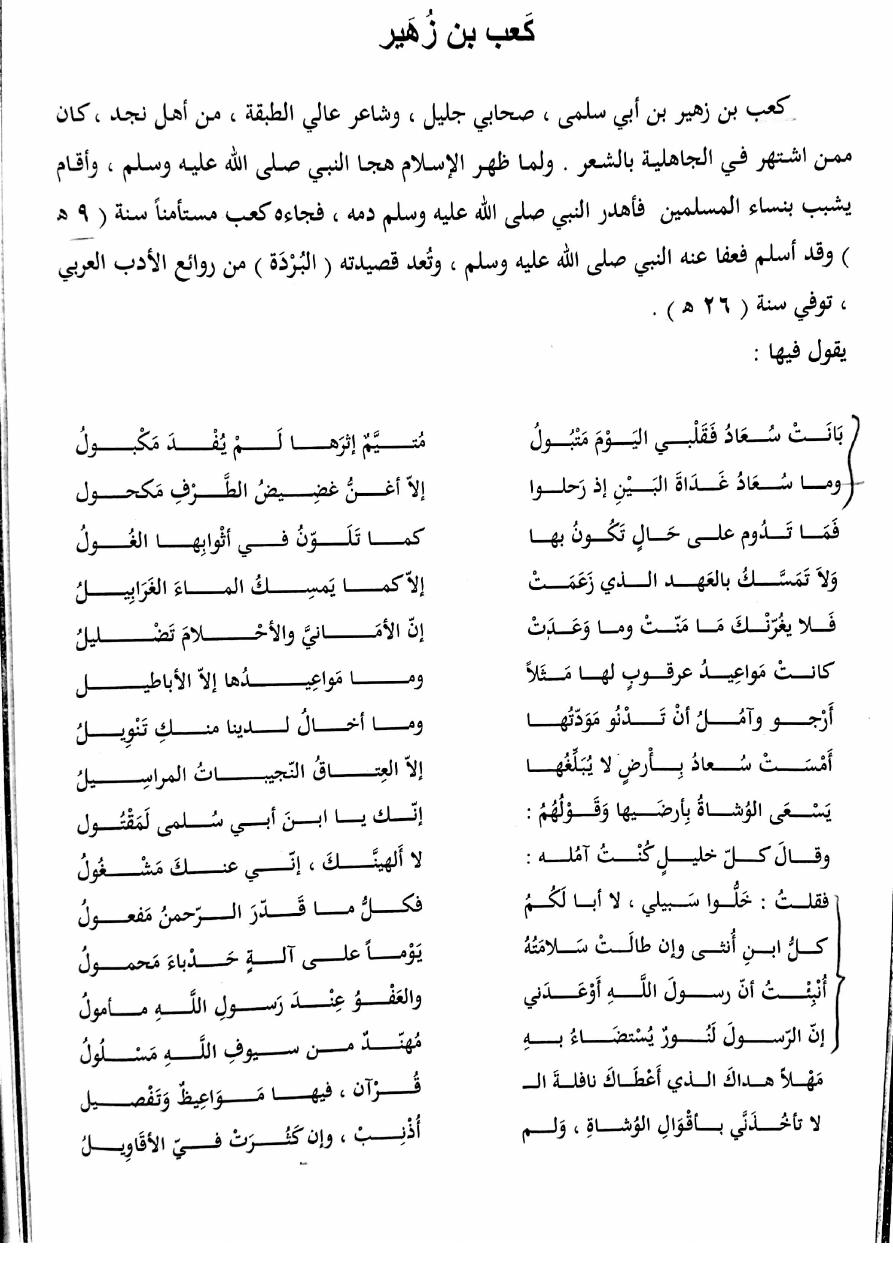 كَعب بن زُهَير
كعب بن زهير بن أبي سلمى ، صحابي جليل ، وشاعر عالي الطبقة ، من أهل نجد ، كان
ممن اشتهر في الجاهلية بالشعر . ولما ظهر الإسلام هجا النبي صلى الله عليه وسلم ، وأقام
يشبب بنساء المسلمين فأهدر النبي صلى الله عليه وسلم دمه ، فجاءه كعب مستأمناً سنة ( ٩ هـ
) وقد أسلم فعفا عنه النبي صلى الله عليه وسلم ، وتُعد قصيدته ( البُرْدَة ) من روائع الأدب العربي
، توفي سنة ( ٢٦ هـ ) .
يقول فيها :
بَانَتْ سُعَادُ فَقَلْبي اليَوْمَ مَتْبُولُ مُتيَّمٌ إثرَها لَمْ يُفْدَ مَكْبولُ
وما سُعَادُ غَداةَ البَيْنِ إذ رَحلوا إلاّ أغنُّ غضِيضُ الطَّرْفِ مَكحول
فَمَا تَدُوم على حَالٍ تَكُونُ بها كما تَلَوّنُ في أثْوابِها الغُولُ
وَلاَ تَمَسَّكُ بالعَهد الذي زَعَمَتْ إلاّ كما يَمسِكُ الماءَ الغَرَابِيلُ
فَلا يغُرّنْكَ مَا مَنّتْ وما وَعَدَتْ إنّ الأمَانيَّ والأحْلامَ تَضْليلُ
كانتْ مَواعِيدُ عرقوبٍ لها مَثَلاً وما مَواعِيدُها إلاّ الأباطيل
أَرْجو وآمُلُ أنْ تَدْنُو مَوَدّتُها وما أخالُ لدينا منكِ تَنْوِيلُ
أَمْسَتْ سُعادُ بأرضٍ لا يُبَلِّغُها إلاّ العِتاقُ النّجيباتُ المراسِيلُ
يَسْعَى الوُشاةُ بأرضَيها وَقَوْلُهُمُ : إنّك يا ابنَ أبي سُلمى لَمَقْتُول
وقالَ كلّ خليلٍ كُنْتُ آمُله : لا أَلهينَّكَ ، إنّي عنكَ مَشْغُولُ
فقلتُ : خَلُّوا سَبيلي ، لا أبا لَكُمُ فكلُّ ما قَدّرَ الرّحمنُ مَفعولُ
كلُّ ابنِ أُنثى وإن طالَتْ سَلامَتُهُ يَوْماً على آلةٍ حَدْباءَ مَحمولُ
أُنْبِئْتُ أنّ رسولَ اللَّهِ أوْعَدَني والعَفْوُ عِنْدَ رَسولِ اللَّهِ مأمولُ
إنّ الرّسولَ لَنُورٌ يُسْتضَاءُ بهِ مُهنّدٌ من سيوفِ اللَّهِ مَسْلُولُ
مَهْلاً هداكَ الذي أَعْطَاكَ نافلةَ الـ قُرْآن ، فيها مَوَاعِيظٌ وَتَفْصيل
لا تأخُذَنَّي بأقْوَالِ الوُشاةِ ، وَلم أُذْنِبْ ، وإن كَثُرَتْ فيّ الأقَاوِيلُ